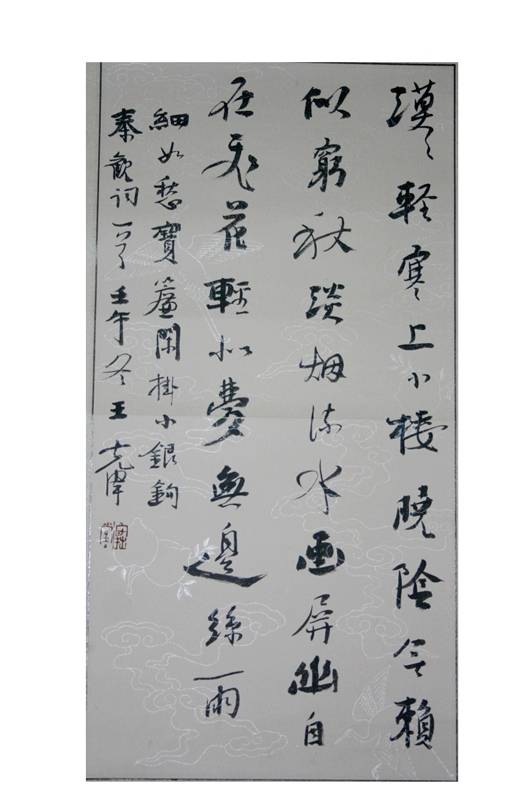 漠〻輕寒上小樓曉陰无賴
似窮秋淡烟流水画屏幽自
在飛花輕似夢無邊絲雨
細如愁寶簾閑掛小銀鉤
秦觀詞一首壬午冬王